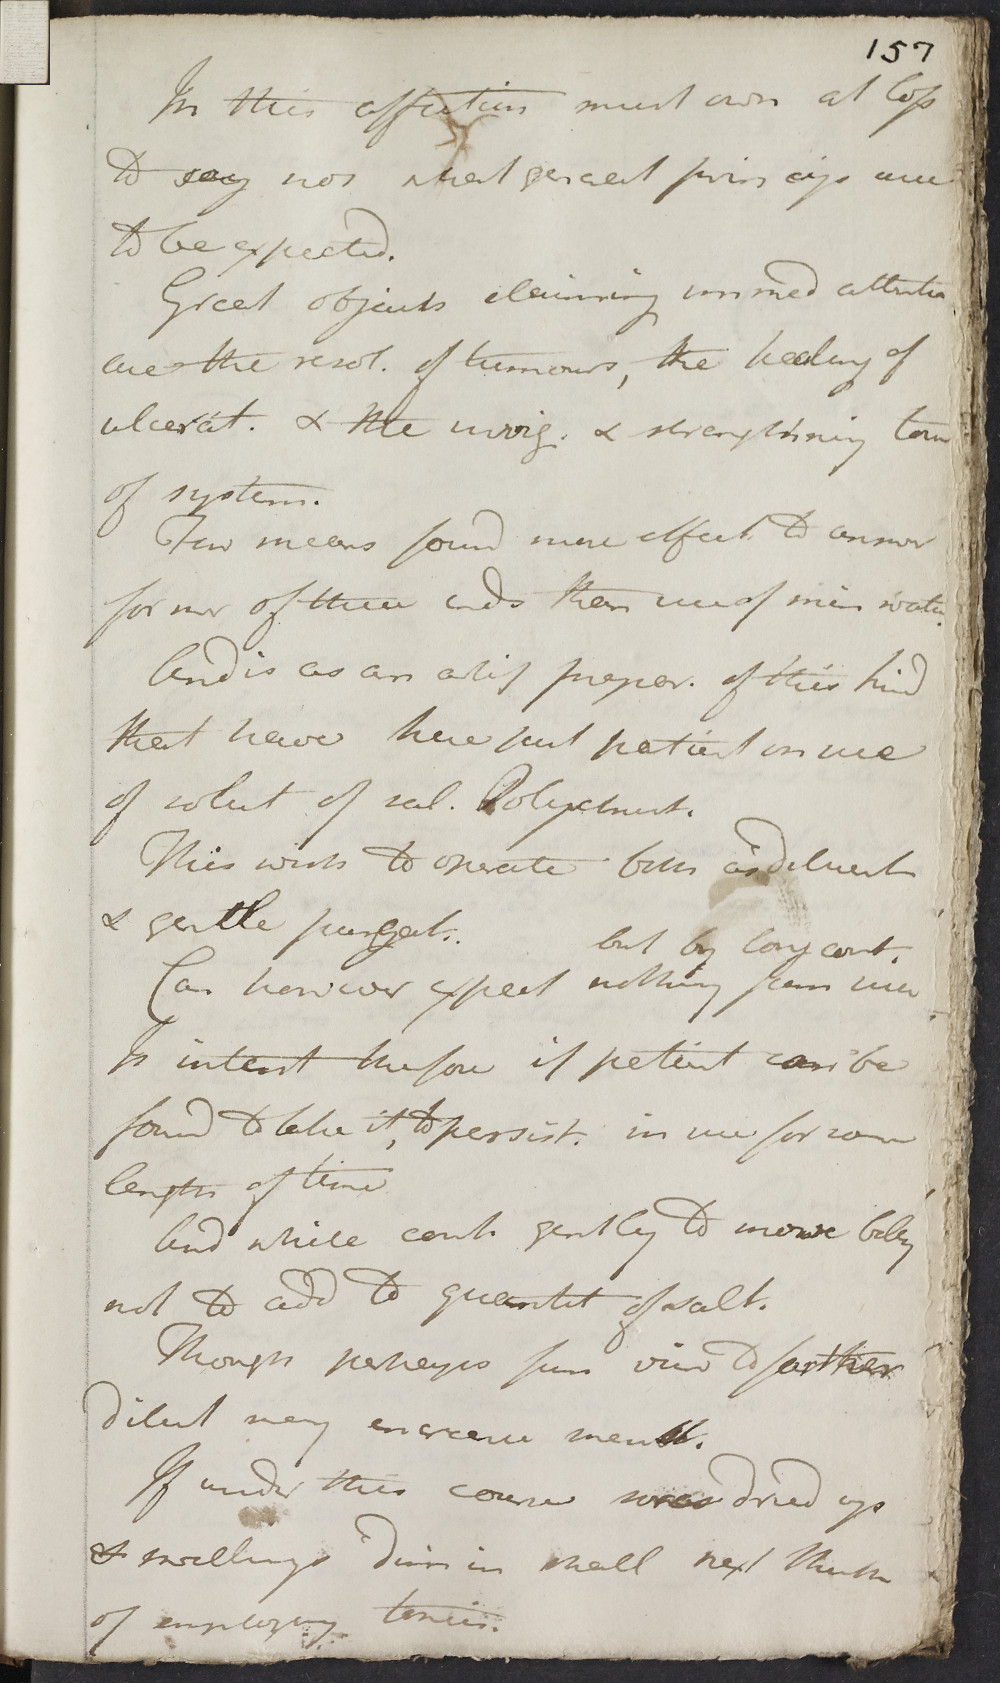 157
In this affection must own at loss
to say nos what general princips are
to be expected.
Great objects claiming immed attentio
are the resol. of tumours, the healing of
ulcerat. & the invig. & strengthning tone
of system.
Few means found more effect. to answer
former of these ends than use of min water.
And is as an artif prepar. of this kind
that have here put patient on use
of solut of sal. Polychrest.
This wish to operate both as diluent
& gentle purgat.
but by long cont.
Can however expect nothing from use
Is intent therefore if patient can be
found to take it, to persist. in use for some
length of time
And while conts gently to move belly
not to add to quantit of salt.
Though perhaps from view to farther
dilut may increase menst.
If under this course sores dried up
& swellings dimin shall next think
of employing tonics.